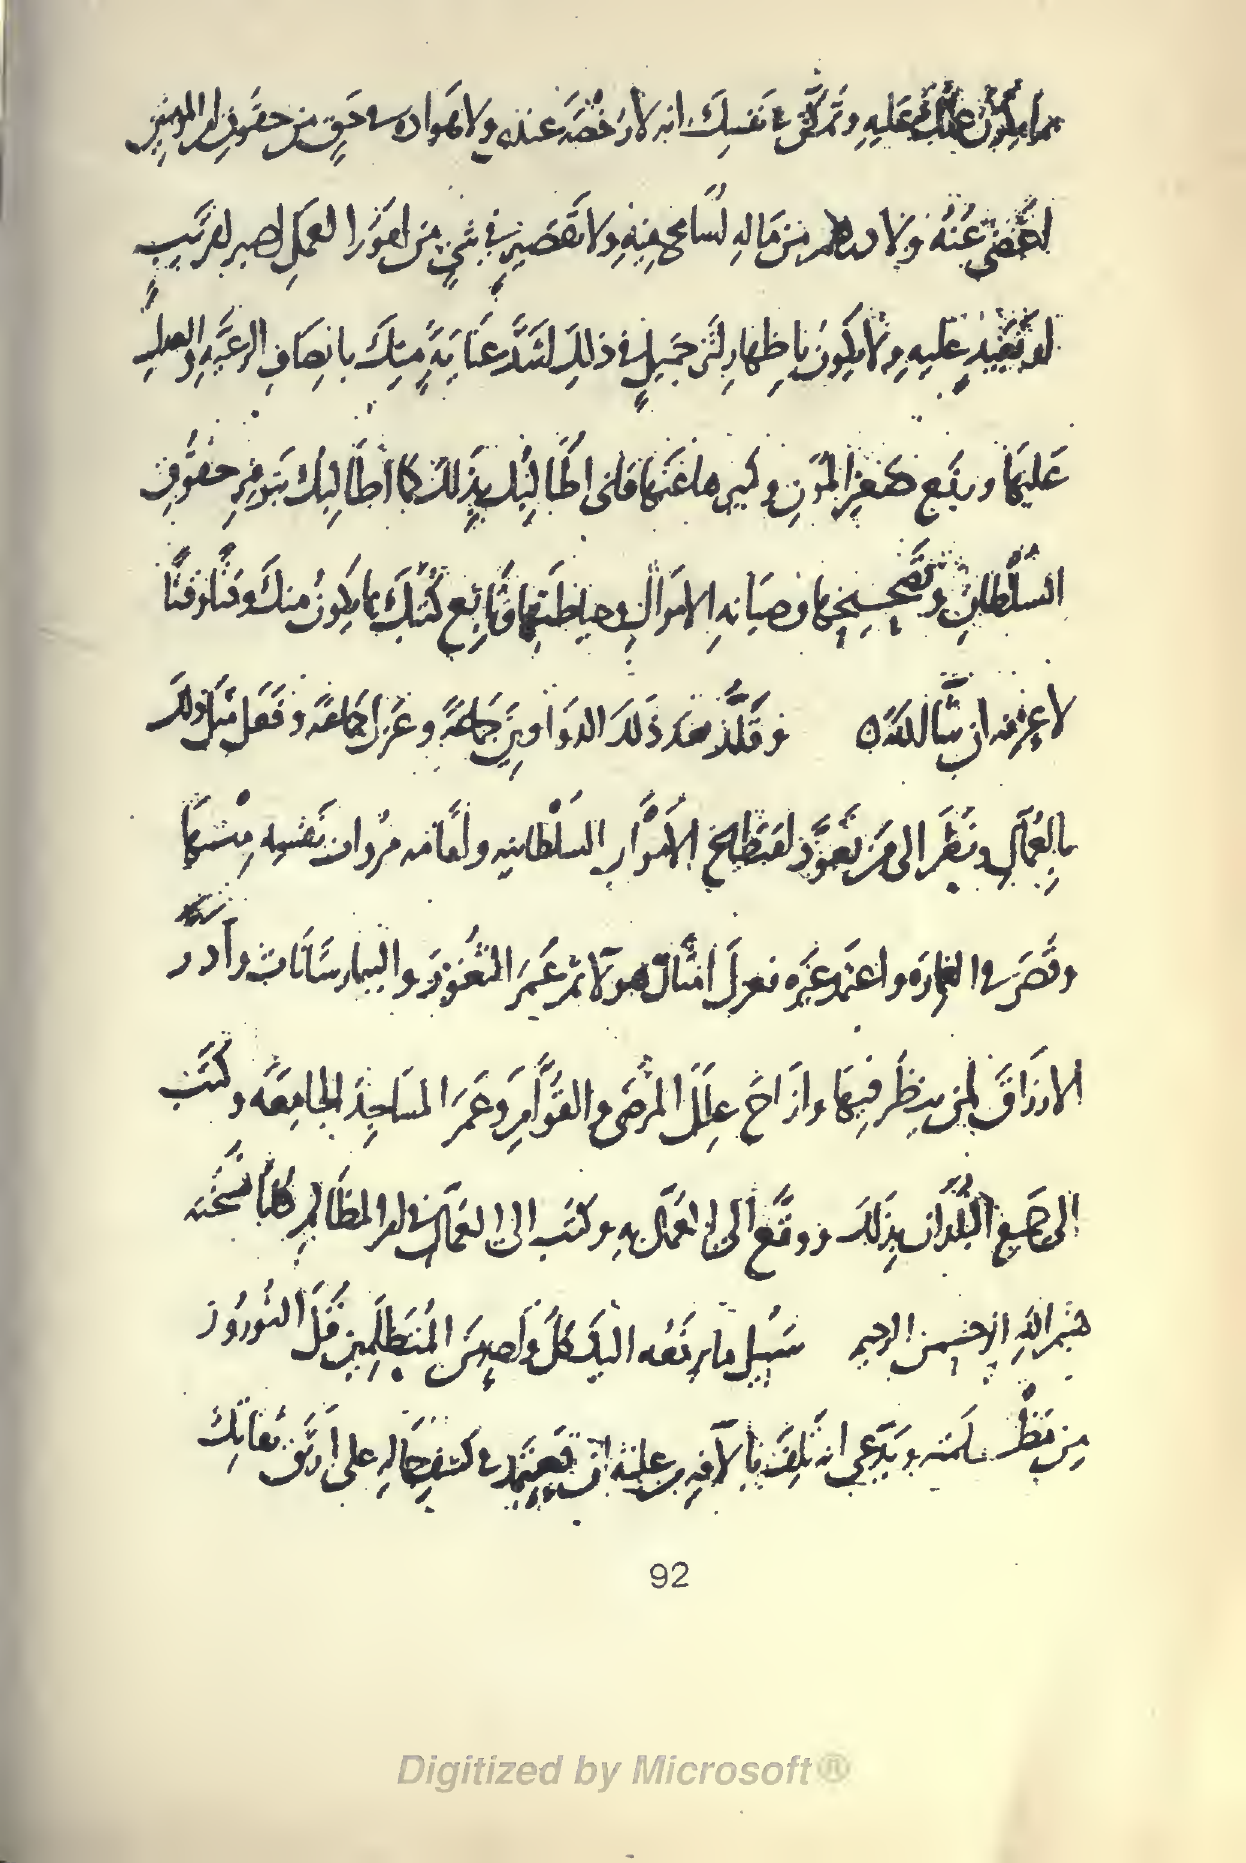 عليه وتمكن في نفسك انه لا رخصة عنده ولا هوادة في حق من حقوق امير المومنين
اغضى عنه ولا درهم من ماله اسامح فيه ولا تقصير في شي من امور العمل اصبر لقريب
عليه ولا يكون باظهار اثر جميل في ذلك اشد عناية منك بانصاف الرعية والعدل
عليها ورفع صغير المؤن وكبيرها عنها فانى اطالبك بذلك كما اطالبك بتوفير حقوق
السلطان وتصحيحها وصيانة الاموال وحياطتها وتابع كتبك بما يكون منك وقتا وقتا
لاعرفه ان شا الله ٥ وقلد بعد ذلك الدواوين جماعة وعزل جماعة وفعل مثل ذلك
بالعمال ونظر الى من تعود اقتطاع الاموال السلطانية واقامة مروات نفسه منها
وقصر في العمارة واعتمد غيره فعزل امثال هولا ثم عمر الثغور والبيمارستانات وادر
الارزاق لمن ينظر فيها وازاح علل المرضى والقوام وعمر المساجد الجامعة وكتب
الى جميع البلدان بذلك ووقع الى العمال به وكتب الى العمال في امر المظالم كتابا نسخته
بسم الله الرحمن الرحيم سبيل ما يرفعه اليك كل واحد من المتظلمين قبل النوروز
من مظلمته ويدعى انه تلف بالآفة من غلته ان تعتمد في كشف حاله على اوثق ثقاتك
92
Digitized by Microsoft®